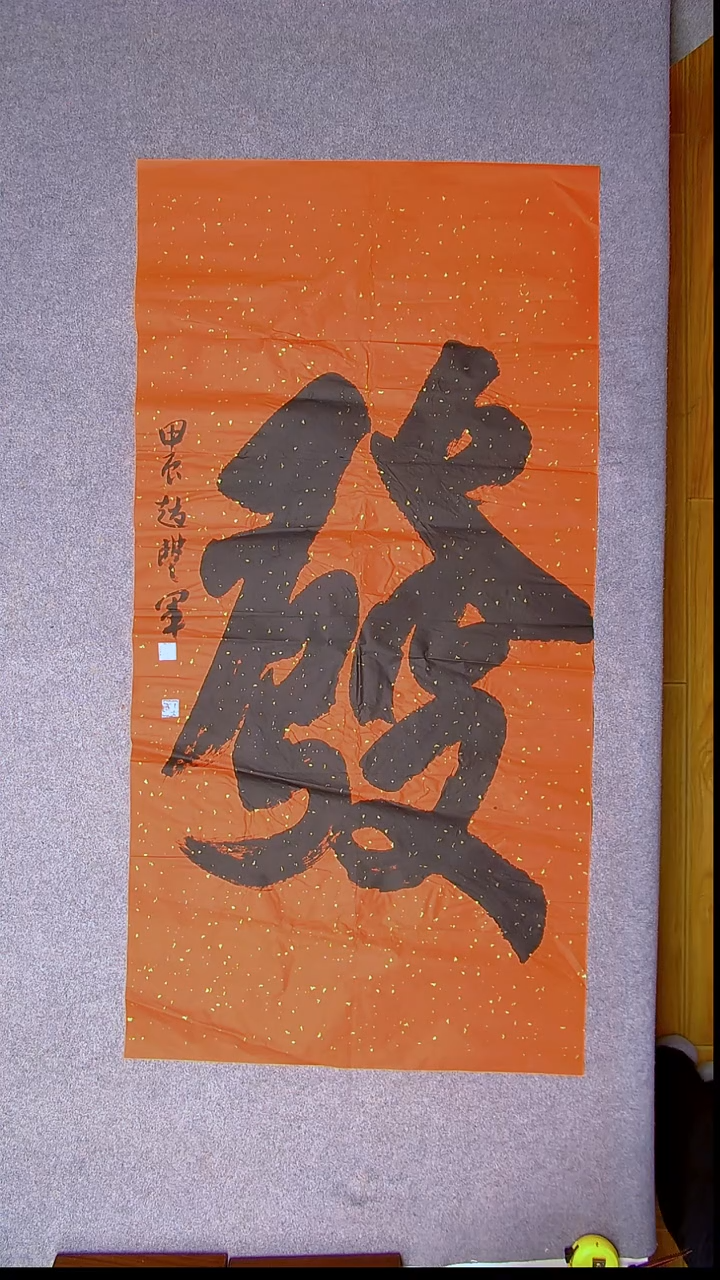 發
甲辰趙軍